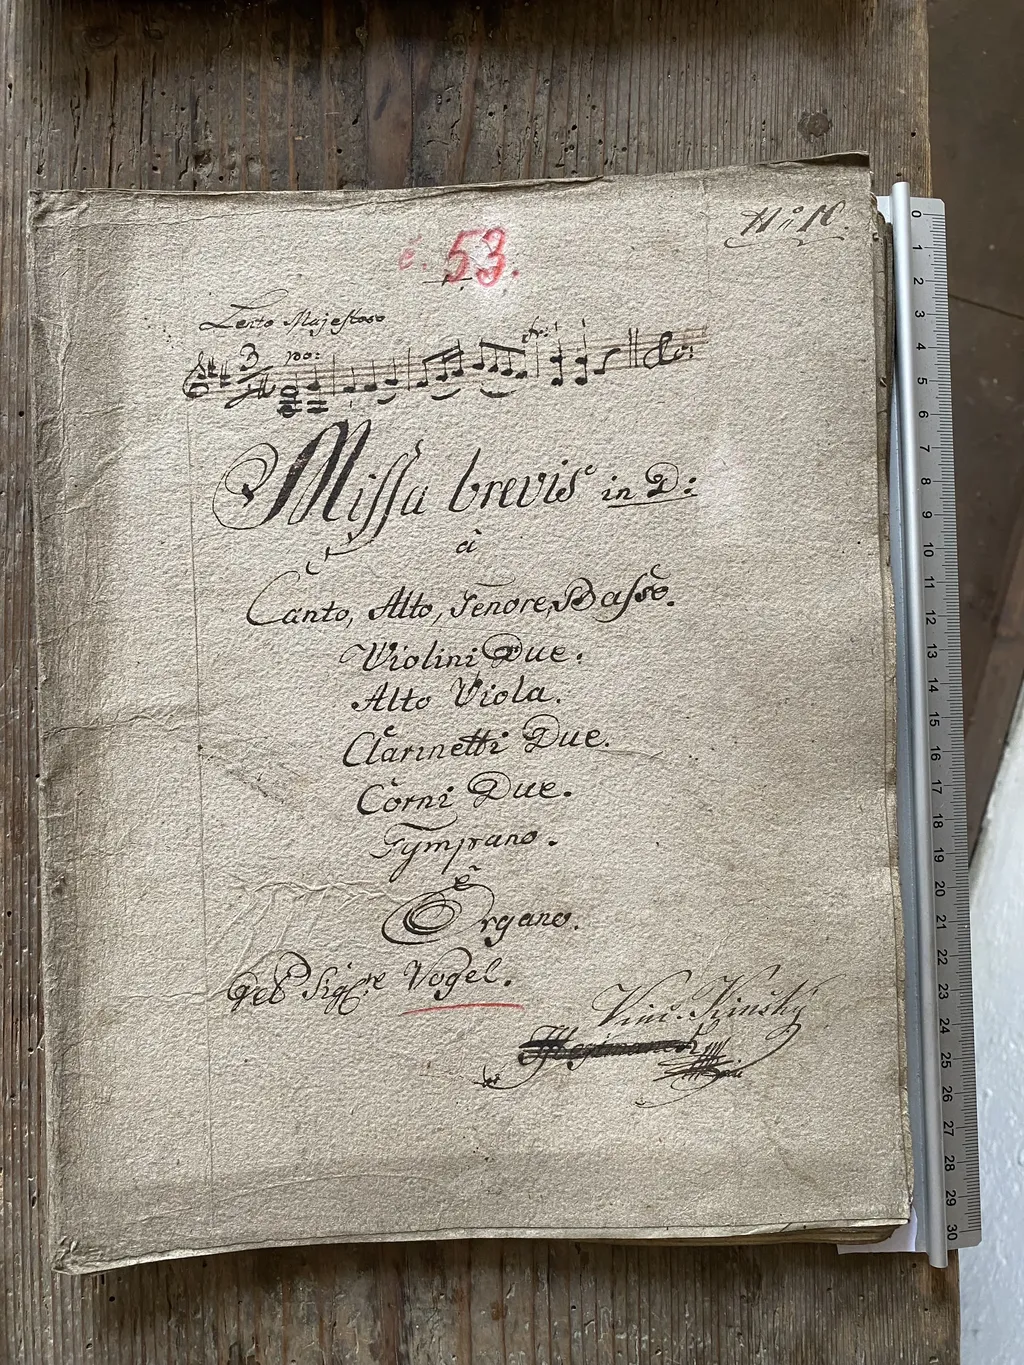 N:o 10.
č. 53.
Lento Majestoso
po: fr:
Missa brevis in D:
à
Canto, Alto, Tenore, Basso.
Violini Due.
Alto Viola.
Clarinetti Due.
Corni Due.
Tympano.
è
Organo.
Del Sigre Vogel.
Vinc.
0
1
2
3
4
5
6
7
8
9
10
11
12
13
14
15
16
17
18
19
20
21
22
23
24
25
26
27
28
29
30